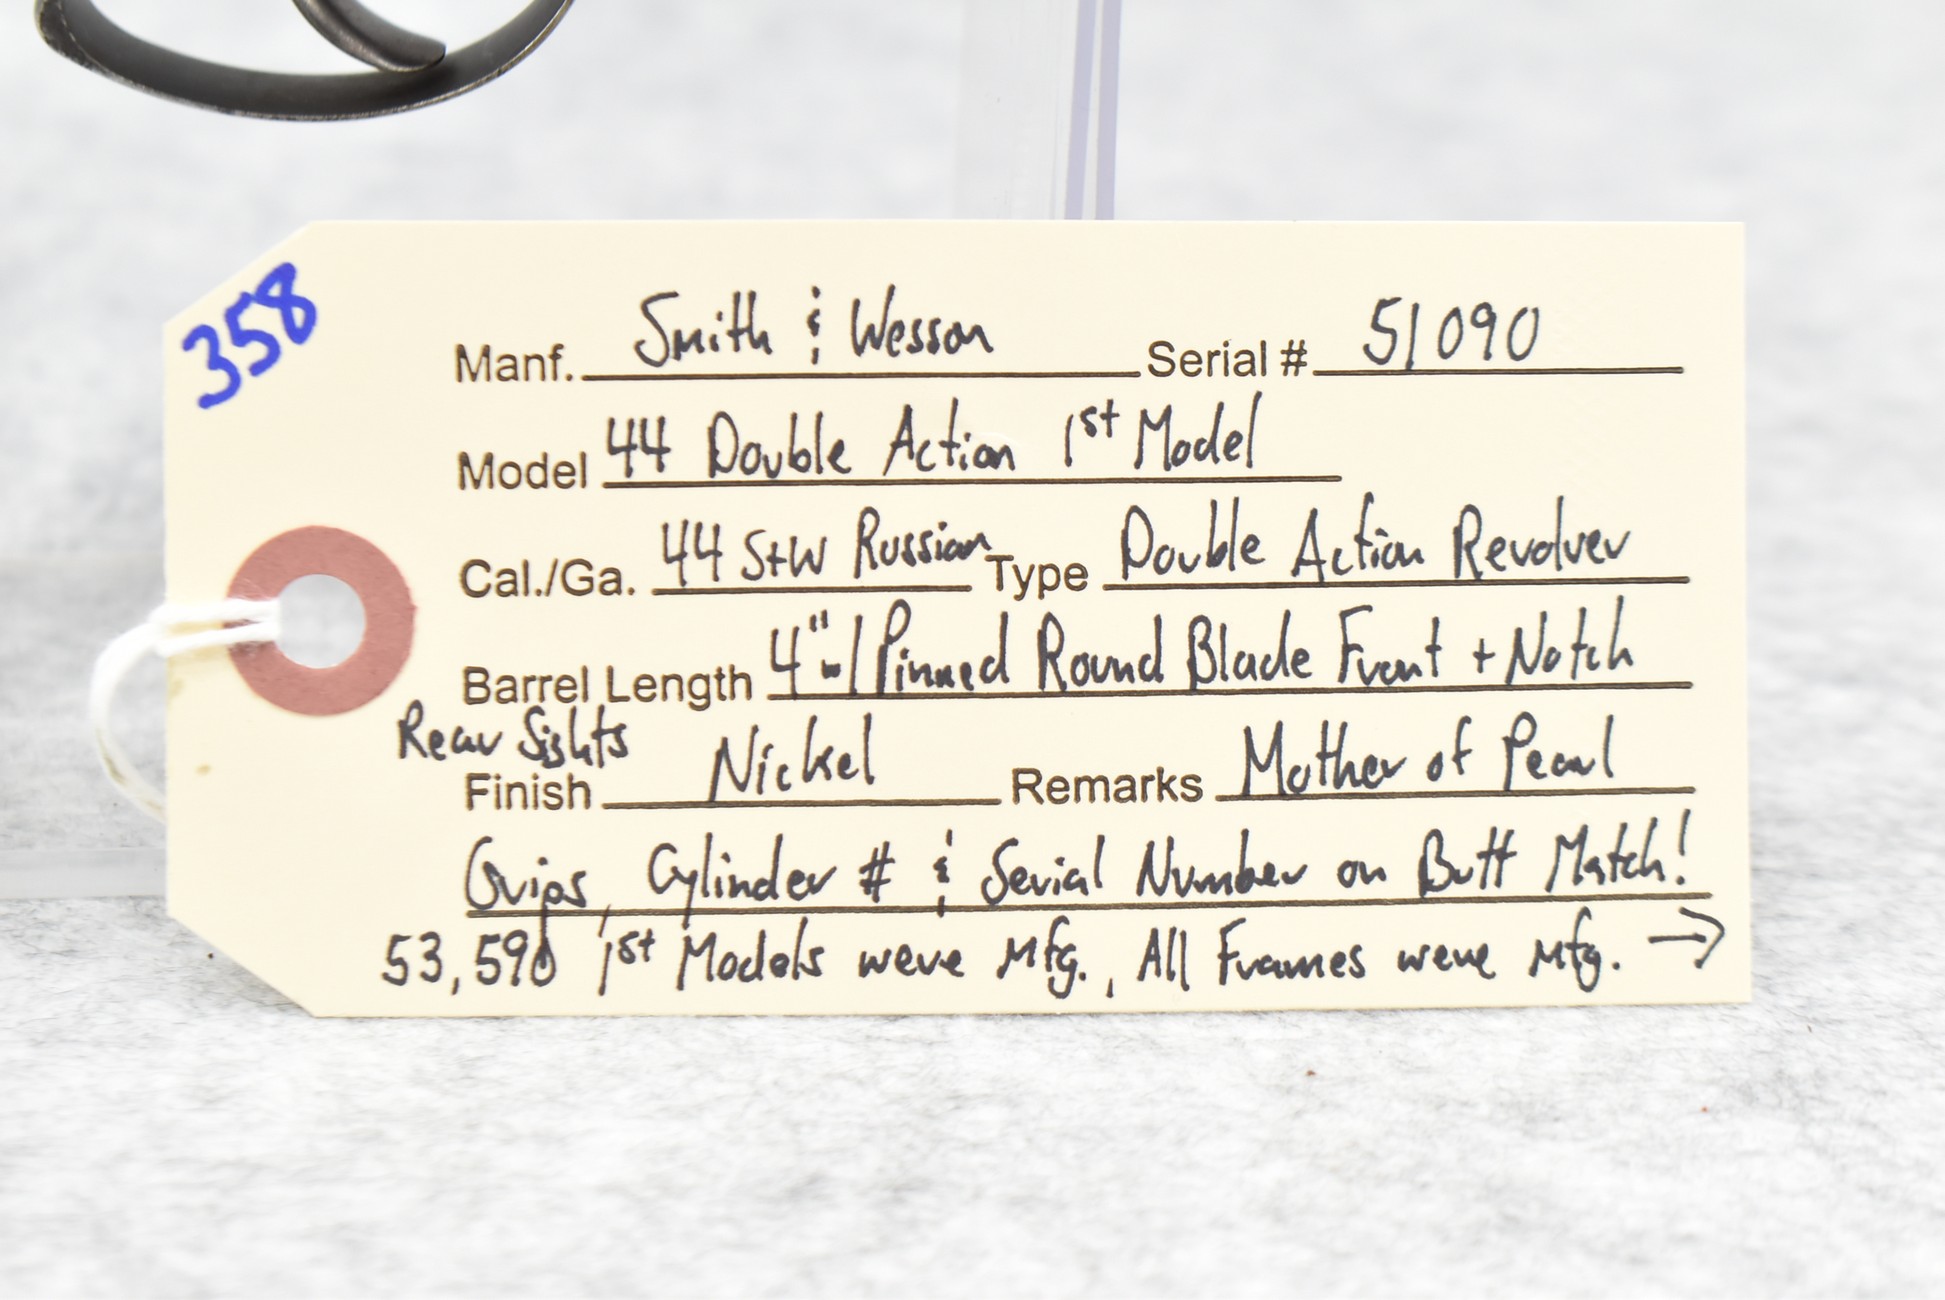 358
Manf. Smith & Wesson Serial # 51090
Model 44 Double Action 1st Model
Cal./Ga. 44 S+W Russian Type Double Action Revolver
Barrel Length 4" w/ Pinned Round Blade Front + Notch
Rear Sights
Finish Nickel Remarks Mother of Pearl
Grips, Cylinder # & Serial Number on Butt Match!
53,590 1st Models were Mfg., All Frames were Mfg. →